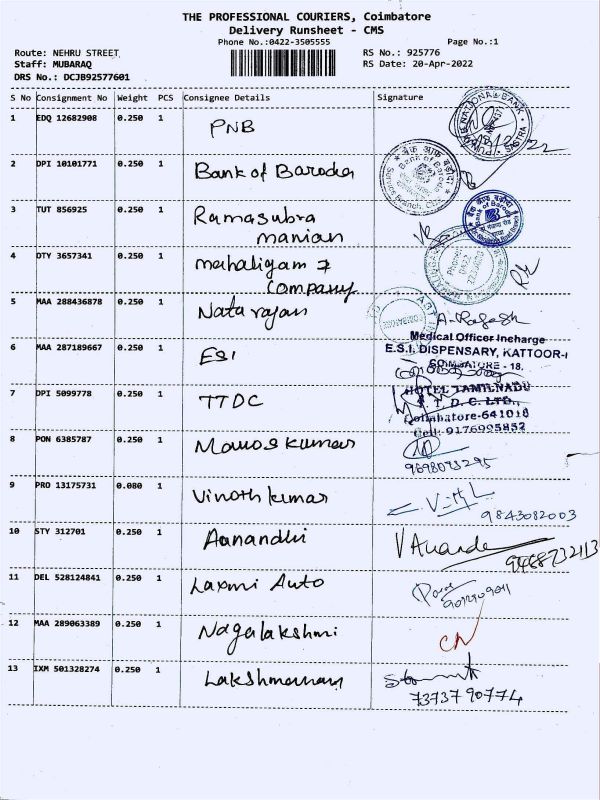 THE PROFESSIONAL COURIERS, Coimbatore
Delivery Runsheet - CMS
Phone No.:0422-3505555
Page No.:1
Route: NEHRU STREET
RS No.: 925776
Staff: MUBARAQ
RS Date: 20-Apr-2022
DRS No.: DCJB92577601
S No Consignment No Weight PCS Consignee Details Signature
1 EDQ 12682908 0.250 1 PNB
2 DPI 10101771 0.250 1 Bank of Baroda
3 TUT 856925 0.250 1 Ramasubra
manian
4 DTY 3657341 0.250 1 mahaligam
Company
5 MAA 288436878 0.250 1 Natarajan
6 MAA 287189667 0.250 1 ESI
Medical Officer Incharge
E.S.I. DISPENSARY, KATTOOR-I
COIMBATORE - 18.
7 DPI 5099778 0.250 1 TTDC
HOTEL TAMILNADU
T. T. D. C. LTD.,
Coimbatore-641018
Cell: 9176995852
8 PON 6385787 0.250 1 Manoskumar
9698093295
9 PRO 13175731 0.080 1 Vinoth kumar
9843082003
10 STY 312701 0.250 1 Aanandhi
V Ananda
9468732113
11 DEL 528124841 0.250 1 Laxmi Auto
12 MAA 289063389 0.250 1 Nagalakshmi
CN
13 IXM 501328274 0.250 1 Lakshmanan
7373790774